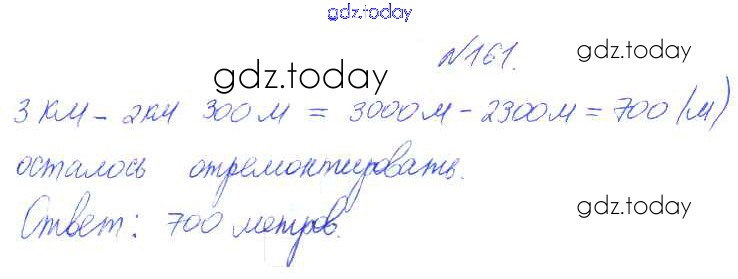 gdz.today
№161.
gdz.today
gdz.today
3 км - 2 км 300 м = 3000 м - 2300 м = 700 (м)
осталось отремонтировать.
Ответ: 700 метров.
gdz.today